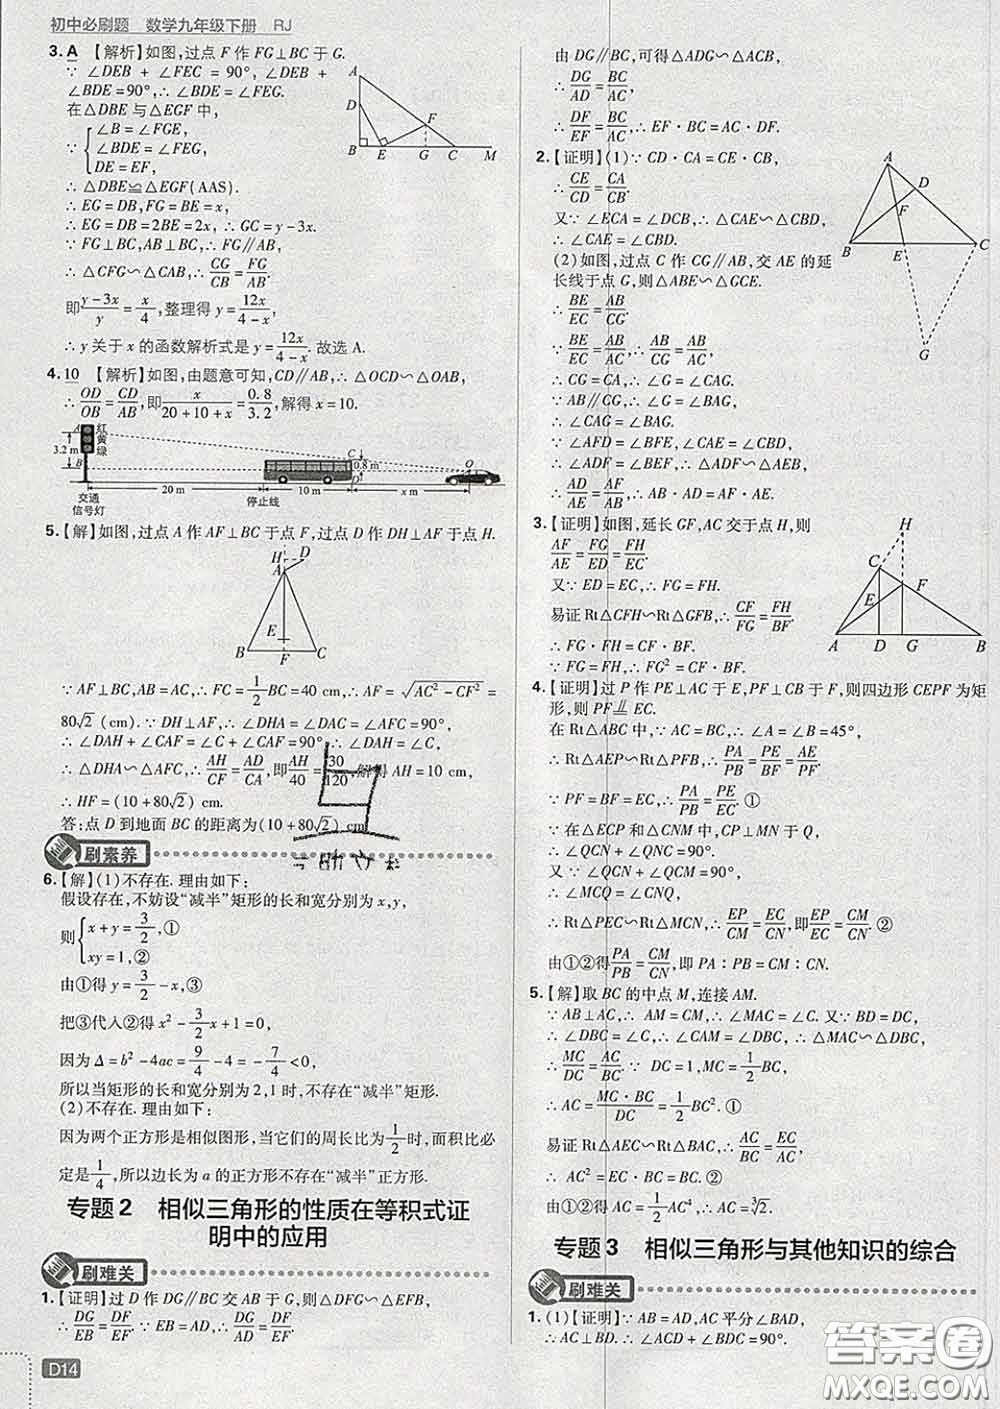 初中必刷题 数学九年级下册 RJ
3. A 【解析】如图,过点 F 作 FG⊥BC 于 G.
∵ ∠DEB + ∠FEC = 90°, ∠DEB +
∠BDE = 90°, ∴ ∠BDE = ∠FEG.
在△DBE 与△EGF 中,
{∠B = ∠FGE,
∠BDE = ∠FEG,
DE = EF,
∴ △DBE≌△EGF(AAS).
∴ EG = DB, FG = BE = x.
∴ EG = DB = 2BE = 2x, ∴ GC = y - 3x.
∵ FG⊥BC, AB⊥BC, ∴ FG∥AB,
∴ △CFG∽△CAB, ∴ GC/CB = FG/AB.
即 (y-3x)/y = x/4, 整理得 y = 12x/(4-x).
∴ y 关于 x 的函数解析式是 y = 12x/(4-x). 故选 A.
A
D
F
B E G C M
4. 10 【解析】如图,由题意可知,CD∥AB, ∴ △OCD∽△OAB,
∴ OD/OB = CD/AB, 即 x/(20+10+x) = 0.8/3.2, 解得 x = 10.
A 红
黄
绿
3.2 m
B
C
0.8 m
D
O
20 m 10 m x m
交通
信号灯
停止线
5. 【解】如图,过点 A 作 AF⊥BC 于点 F,过点 D 作 DH⊥AF 于点 H.
H D
A
E
B F C
∵ AF⊥BC, AB = AC, ∴ FC = 1/2 BC = 40 cm, ∴ AF = √(AC² - CF²) =
80√2 (cm). ∵ DH⊥AF, ∴ ∠DHA = ∠DAC = ∠AFC = 90°,
∴ ∠DAH + ∠CAF = ∠C + ∠CAF = 90°, ∴ ∠DAH = ∠C,
∴ △DAH∽△AFC, ∴ AH/CF = AD/CA, 即 AH/40 = 30/120, 解得 AH = 10 cm,
∴ HF = (10 + 80√2) cm.
答:点 D 到地面 BC 的距离为(10 + 80√2) cm.
刷素养
6. 【解】(1)不存在. 理由如下:
假设存在,不妨设“减半”矩形的长和宽分别为 x, y,
则 {x + y = 3/2, ①
xy = 1, ②
由①得 y = 3/2 - x, ③
把③代入②得 x² - 3/2 x + 1 = 0,
因为 Δ = b² - 4ac = 9/4 - 4 = -7/4 < 0,
所以当矩形的长和宽分别为 2, 1 时,不存在“减半”矩形.
(2)不存在. 理由如下:
因为两个正方形是相似图形,当它们的周长比为 1/2 时,面积比必
定是 1/4, 所以边长为 a 的正方形不存在“减半”正方形.
专题2 相似三角形的性质在等积式证
明中的应用
刷难关
1. 【证明】过 D 作 DG∥BC 交 AB 于 G,则△DFG∽△EFB,
∴ DG/EB = DF/EF. ∵ EB = AD, ∴ DG/AD = DF/EF.
D14
由 DG∥BC,可得△ADG∽△ACB,
∴ DG/AD = BC/AC.
∴ DF/EF = BC/AC, ∴ EF·BC = AC·DF.
2. 【证明】(1) ∵ CD·CA = CE·CB,
∴ CE/CD = CA/CB.
又∵ ∠ECA = ∠DCB, ∴ △CAE∽△CBD,
∴ ∠CAE = ∠CBD.
(2)如图,过点 C 作 CG∥AB,交 AE 的延
长线于点 G,则△ABE∽△GCE.
∴ BE/EC = AB/CG.
∵ BE/EC = AB/AC, ∴ AB/CG = AB/AC,
∴ CG = CA, ∴ ∠G = ∠CAG.
∵ AB∥CG, ∴ ∠G = ∠BAG,
∴ ∠CAG = ∠BAG.
∵ ∠AFD = ∠BFE, ∠CAE = ∠CBD,
∴ ∠ADF = ∠BEF, ∴ △ADF∽△AEB,
∴ AD/AE = AF/AB, ∴ AB·AD = AF·AE.
A
D
F
B E C
G
3. 【证明】如图,延长 GF, AC 交于点 H,则
AF/AE = FG/ED = FH/EC.
又∵ ED = EC, ∴ FG = FH.
易证 Rt△CFH∽Rt△GFB, ∴ CF/FG = FH/BF.
∴ FG·FH = CF·BF.
∵ FG = FH, ∴ FG² = CF·BF.
H
C
F
E
A D G B
4. 【证明】过 P 作 PE⊥AC 于 E, PF⊥CB 于 F,则四边形 CEPF 为矩
形,则 PF∥= EC.
在 Rt△ABC 中, ∵ AC = BC, ∴ ∠A = ∠B = 45°,
∴ Rt△AEP∽Rt△PFB, ∴ PA/PB = PE/BF = AE/PF.
∵ PF = BF = EC, ∴ PA/PB = PE/EC. ①
∵ 在△ECP 和△CNM 中, CP⊥MN 于 Q,
∴ ∠QCN + ∠QNC = 90°.
又∵ ∠QCN + ∠QCM = 90°,
∴ ∠MCQ = ∠CNQ,
∴ Rt△PEC∽Rt△MCN, ∴ EP/CM = EC/CN, 即 EP/EC = CM/CN. ②
由①②得 PA/PB = CM/CN, 即 PA : PB = CM : CN.
5. 【解】取 BC 的中点 M,连接 AM.
∵ AB⊥AC, ∴ AM = CM, ∴ ∠MAC = ∠C. 又∵ BD = DC,
∴ ∠DBC = ∠C, ∴ ∠CAM = ∠DBC, ∴ △MAC∽△DBC,
∴ MC/DC = AC/BC. ∵ DC = 1, MC = 1/2 BC,
∴ AC = MC·BC/DC = 1/2 BC². ①
易证 Rt△AEC∽Rt△BAC, ∴ AC/BC = EC/AC.
∴ AC² = BC·EC = BC. ②
由①②得 AC = 1/2 AC⁴, ∴ AC = ³√2.
专题3 相似三角形与其他知识的综合
刷难关
1. (1)【证明】∵ AB = AD, AC 平分∠BAD,
∴ AC⊥BD. ∴ ∠ACD + ∠BDC = 90°.
答案圈
MXQE.COM